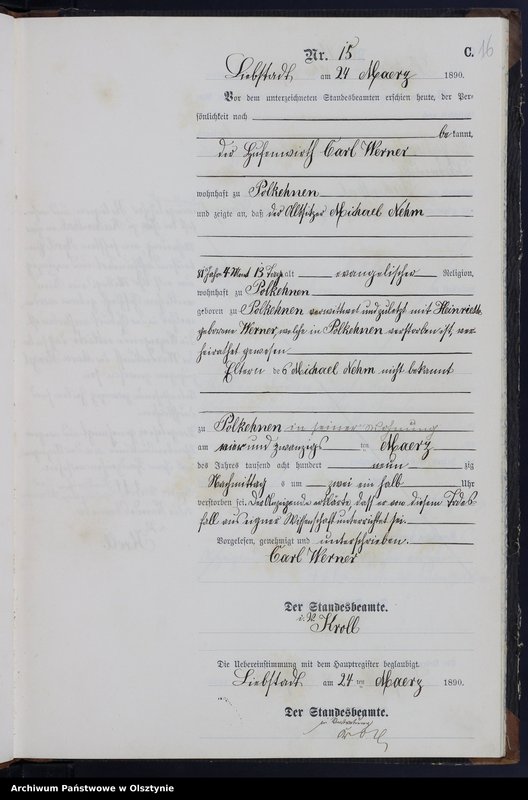 Nr. 15
C. 16
Liebstadt am 24 Maerz 1890.
Vor dem unterzeichneten Standesbeamten erschien heute, der Per-
sönlichkeit nach
bekannt,
der Hufenwirth Carl Werner
wohnhaft zu Polkehnen
und zeigte an, daß der Altsitzer Michael Nehm
81 Jahr 4 Monat 13 Tage alt evangelischer Religion,
wohnhaft zu Polkehnen
geboren zu Polkehnen verwittwet und zuletzt mit Heinriette
geborene Werner, welche in Polkehnen verstorben ist, ver-
heirathet gewesen
Eltern des Michael Nehm nicht bekannt
zu Polkehnen in seiner Wohnung
am vier und zwanzigs ten Maerz
des Jahres tausend acht hundert neun zig
Nachmittags um zwei ein halb Uhr
verstorben sei. Der Anzeigende erklärte, dass er von diesem Todes-
fall aus eigner Wissenschaft unterrichtet sei.
Vorgelesen, genehmigt und unterschrieben.
Carl Werner
Der Standesbeamte.
Kroll
Die Uebereinstimmung mit dem Hauptregister beglaubigt.
Liebstadt am 24 ten Maerz 1890.
Der Standesbeamte.
in Vertretung
Archiwum Państwowe w Olsztynie